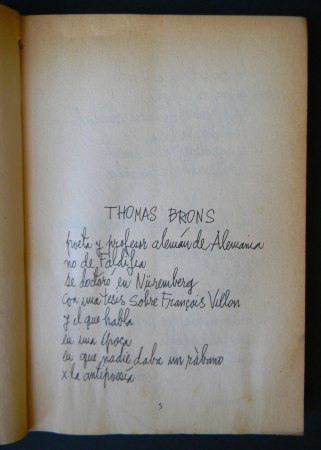 THOMAS BRONS
poeta y profesor alemán de Alemania
no de Faldifia
se doctoró en Nüremberg
con una tesis sobre François Villon
y el que habla
en una época
en que nadie daba un rábano
x la antipoesía
5